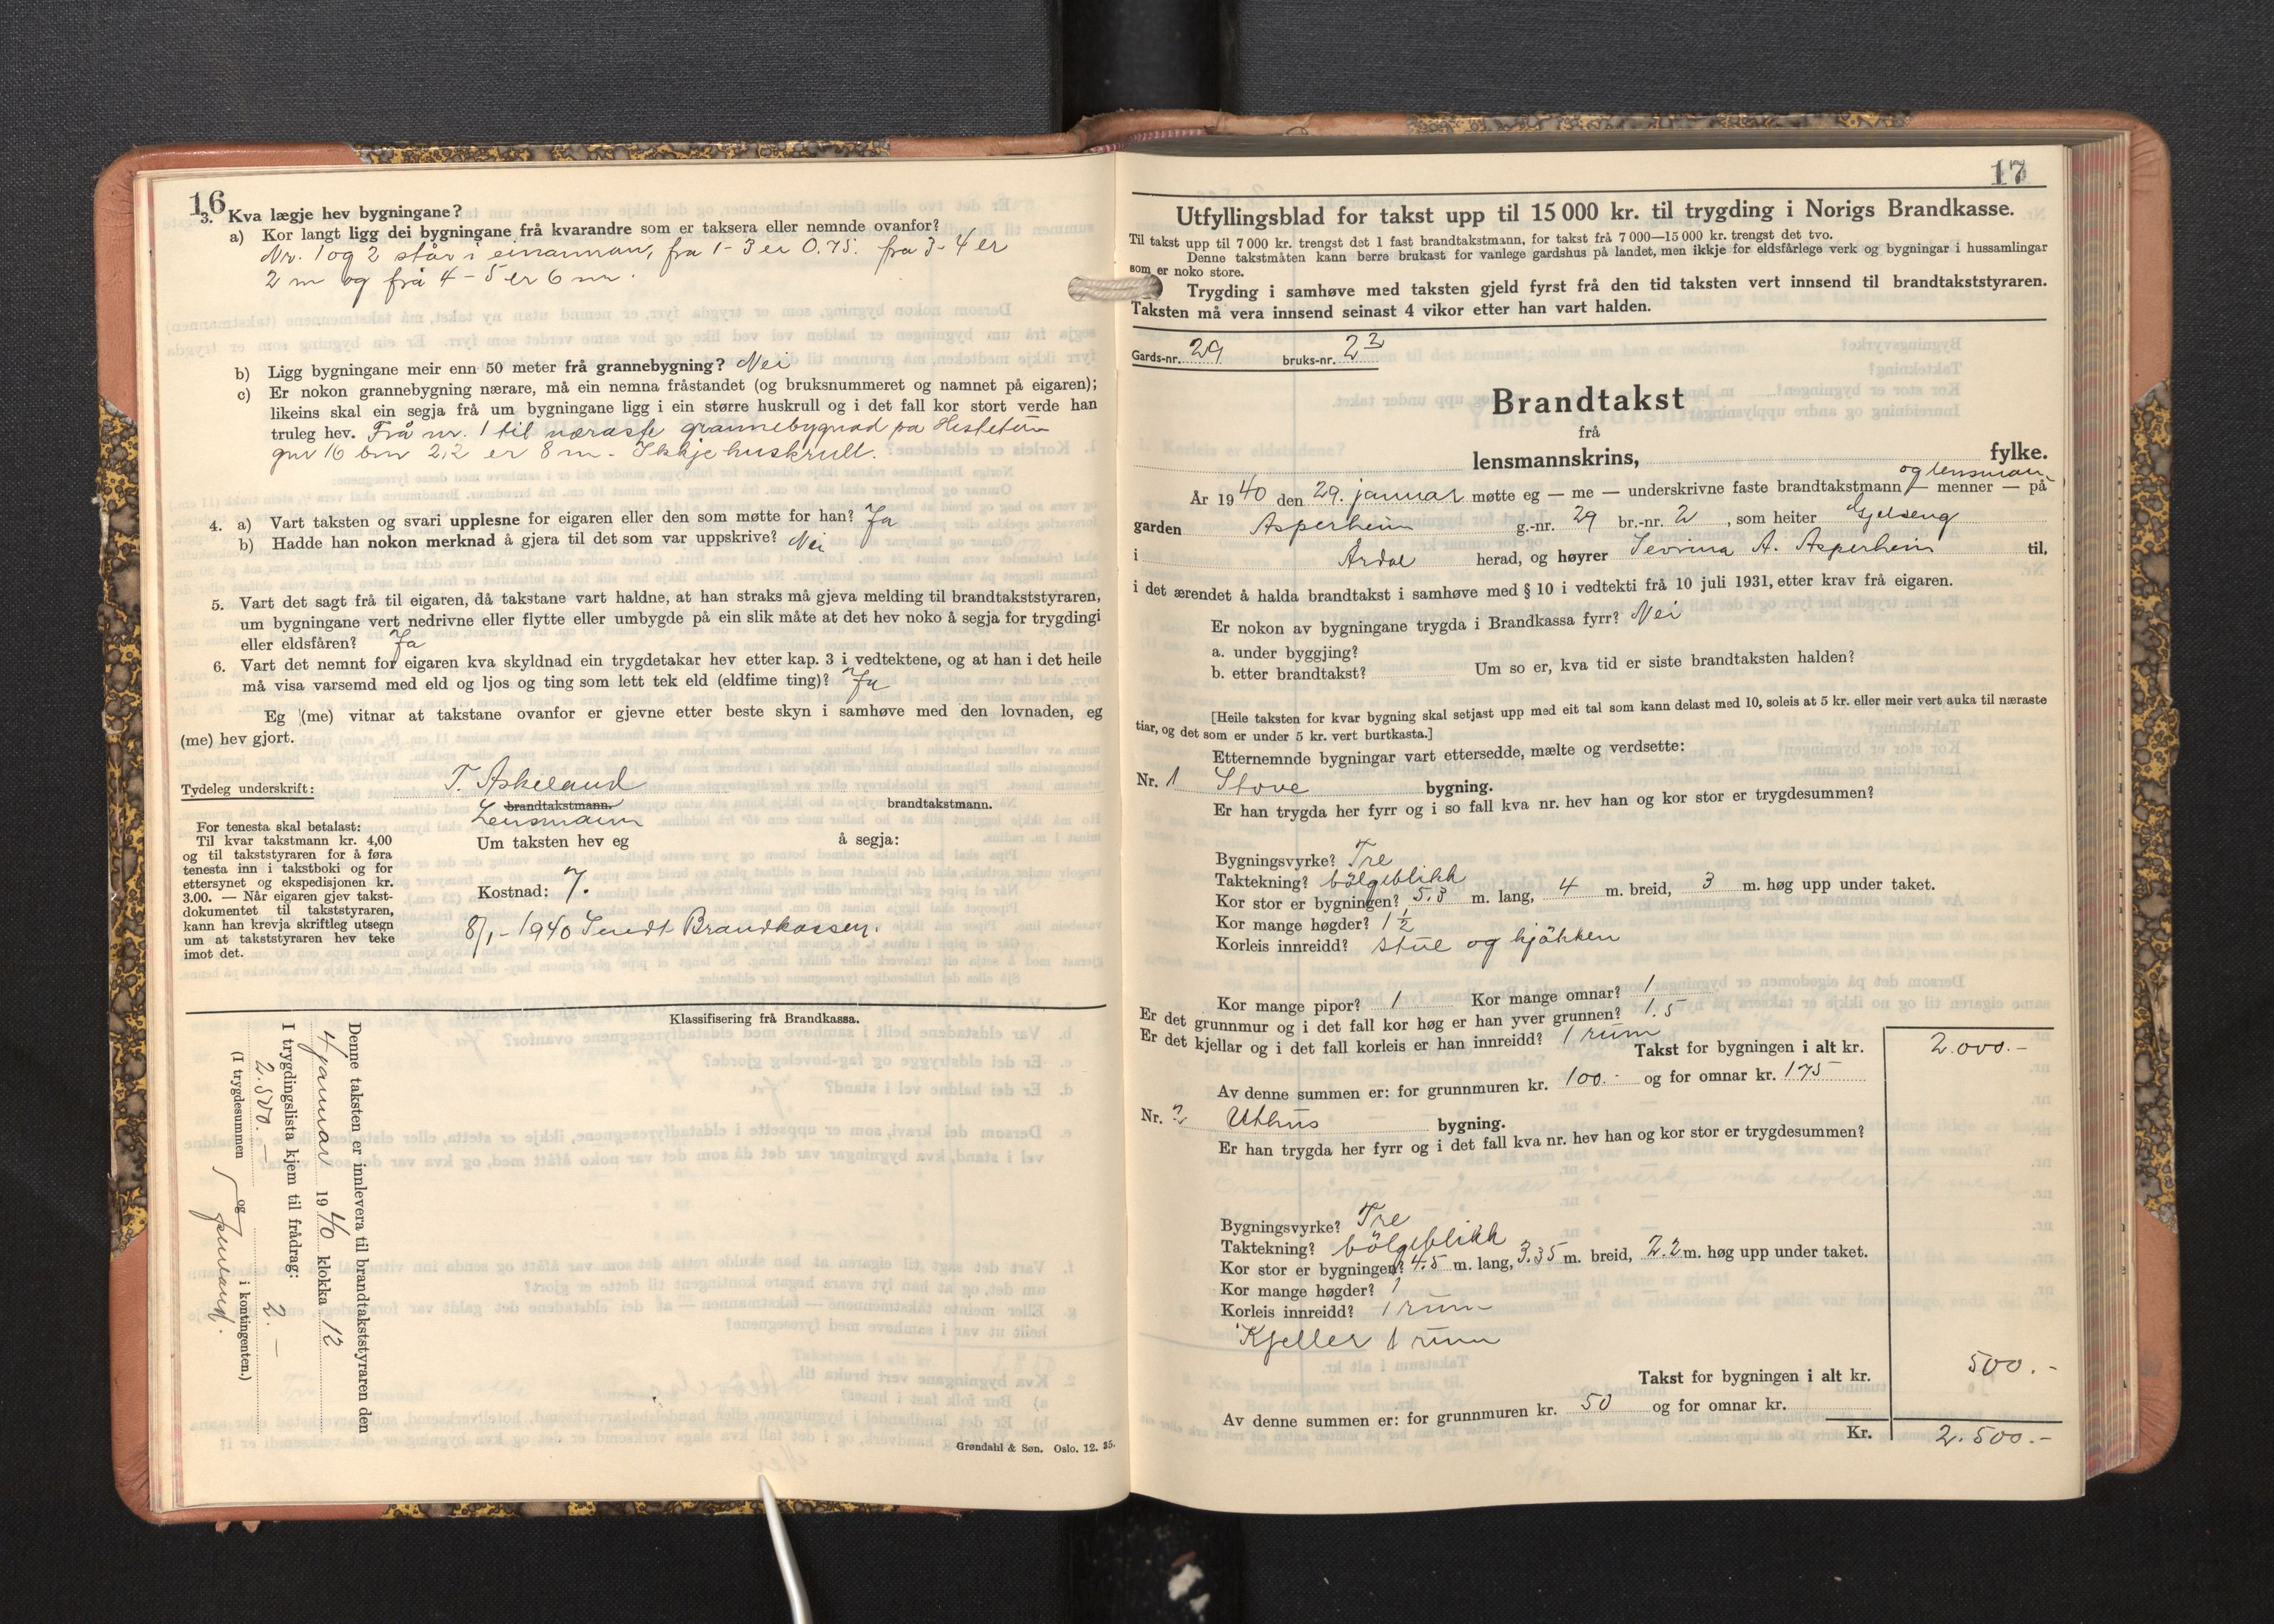 16
3. Kva lægje hev bygningane?
a) Kor langt ligg dei bygningane frå kvarandre som er taksera eller nemnde ovanfor?
Nr. 1 og 2 står i einannan, fra 1-3 er 0.75. fra 3-4 er
2 m og frå 4-5 er 6 m.
b) Ligg bygningane meir enn 50 meter frå grannebygning? Nei
c) Er nokon grannebygning nærare, må ein nemna fråstandet (og bruksnummeret og namnet på eigaren);
likeins skal ein segja frå um bygningane ligg i ein større huskrull og i det fall kor stort verde han
truleg hev. Frå nr. 1 til næraste grannebygnad pa
16 2,2 er 8 m - Ikkje huskrull.
4. a) Vart taksten og svari upplesne for eigaren eller den som møtte for han? Ja
b) Hadde han nokon merknad å gjera til det som var uppskrive? Nei
5. Vart det sagt frå til eigaren, då takstane vart haldne, at han straks må gjeva melding til brandtakststyraren,
um bygningane vert nedrivne eller flytte eller umbygde på ein slik måte at det hev noko å segja for trygdingi
eller eldsfåren? Ja
6. Vart det nemnt for eigaren kva skyldnad ein trygdetakar hev etter kap. 3 i vedtektene, og at han i det heile
må visa varsemd med eld og ljos og ting som lett tek eld (eldfime ting)? Ja
Eg (me) vitnar at takstane ovanfor er gjevne etter beste skyn i samhøve med den lovnaden, eg
(me) hev gjort.
Tydeleg underskrift: T. Askeland
brandtakstmann. brandtakstmann.
Lensmann
For tenesta skal betalast:
Til kvar takstmann kr. 4,00
og til takststyraren for å føra
tenesta inn i takstboki og for
ettersynet og ekspedisjonen kr.
3.00. — Når eigaren gjev takst-
dokumentet til takststyraren,
kann han krevja skriftleg utsegn
um at takststyraren hev teke
imot det.
Um taksten hev eg å segja:
Kostnad: 7.
8/1-1940 Sendt Brandkassen.
Klassifisering frå Brandkassa.
Denne taksten er innlevera til brandtakststyraren den
4 januar 1940 klokka 12
I trygdingslista kjem til frådrag:
2.500.- 2.-
(I trygdesummen og i kontingenten.)
Grøndahl & Søn. Oslo. 12. 35.
17
Utfyllingsblad for takst upp til 15 000 kr. til trygding i Norigs Brandkasse.
Til takst upp til 7 000 kr. trengst det 1 fast brandtakstmann, for takst frå 7 000—15 000 kr. trengst det tvo.
Denne takstmåten kann berre brukast for vanlege gardshus på landet, men ikkje for eldsfårlege verk og bygningar i hussamlingar
som er noko store.
Trygding i samhøve med taksten gjeld fyrst frå den tid taksten vert innsend til brandtakststyraren.
Taksten må vera innsend seinast 4 vikor etter han vart halden.
Gards-nr. 29 bruks-nr. 2 2
Brandtakst
frå
lensmannskrins, fylke.
År 1940 den 29. januar møtte eg — me — underskrivne faste brandtakstmann og lensman — menner — på
garden Asperheim g.-nr. 29 br.-nr. 2, som heiter Gjelseng
i Årdal herad, og høyrer Sevrina A. Asperheim til,
i det ærendet å halda brandtakst i samhøve med § 10 i vedtekti frå 10 juli 1931, etter krav frå eigaren.
Er nokon av bygningane trygda i Brandkassa fyrr? Nei
a. under byggjing?
b. etter brandtakst? Um so er, kva tid er siste brandtaksten halden?
[Heile taksten for kvar bygning skal setjast upp med eit tal som kann delast med 10, soleis at 5 kr. eller meir vert auka til næraste
tiar, og det som er under 5 kr. vert burtkasta.]
Etternemnde bygningar vart ettersedde, mælte og verdsette:
Nr. 1 Stove bygning.
Er han trygda her fyrr og i so fall kva nr. hev han og kor stor er trygdesummen?
Bygningsvyrke? Tre
Taktekning? bölgeblikk
Kor stor er bygningen? 5.3 m. lang, 4 m. breid, 3 m. høg upp under taket.
Kor mange høgder? 1 ½
Korleis innreidd? stue og kjökken
Kor mange pipor? 1 Kor mange omnar? 1
Er det grunnmur og i det fall kor høg er han yver grunnen? 1.5
Er det kjellar og i det fall korleis er han innreidd? 1 rum
Takst for bygningen i alt kr. 2.000.-
Av denne summen er: for grunnmuren kr. 100.- og for omnar kr. 175
Nr. 2 Uthus bygning.
Er han trygda her fyrr og i det fall kva nr. hev han og kor stor er trygdesummen?
Bygningsvyrke? Tre
Taktekning? bölgeblikk
Kor stor er bygningen? 4.5 m. lang, 3.35 m. breid, 2.2 m. høg upp under taket.
Kor mange høgder? 1
Korleis innreidd? 1 rum
Kjeller 1 rum
Takst for bygningen i alt kr. 500.-
Av denne summen er: for grunnmuren kr. 50 og for omnar kr.
Kr. 2.500.-